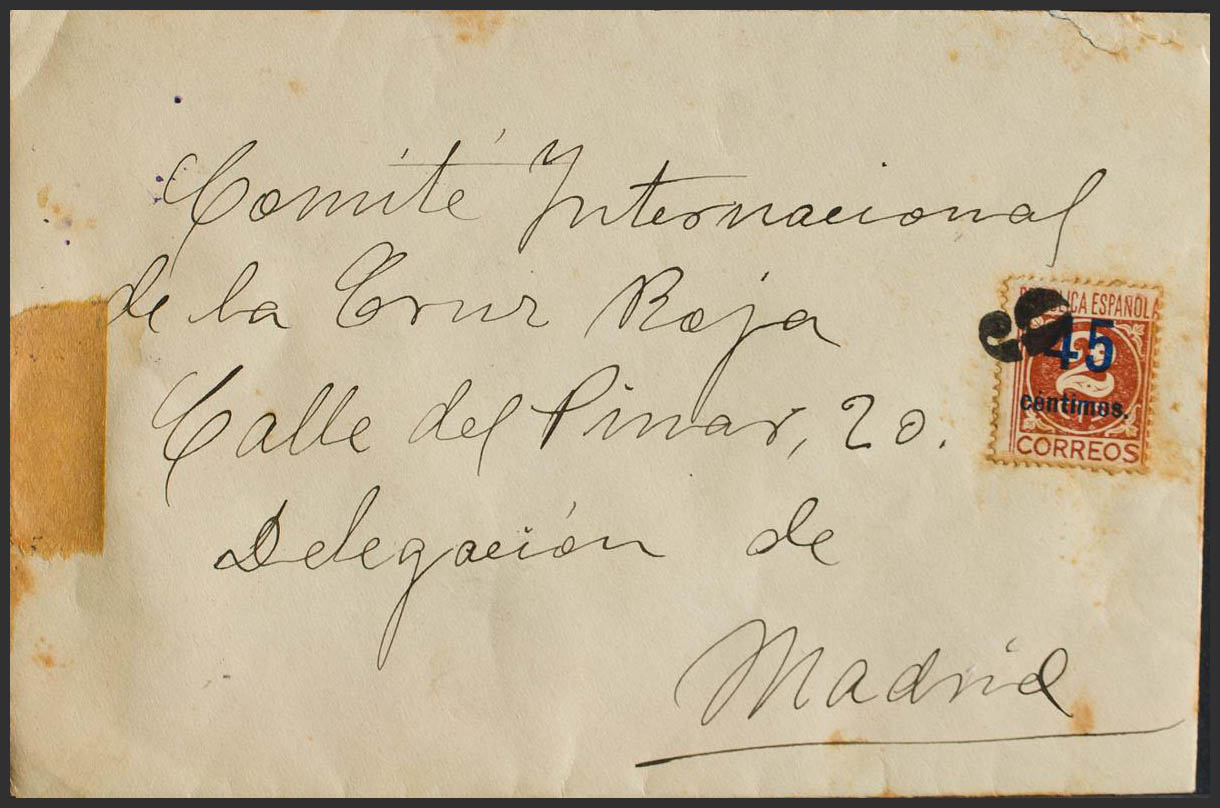 Comité Internacional
de la Cruz Roja
Calle del Pinar, 20.
Delegación de
Madrid
REPUBLICA ESPAÑOLA
45
2
centimos.
CORREOS